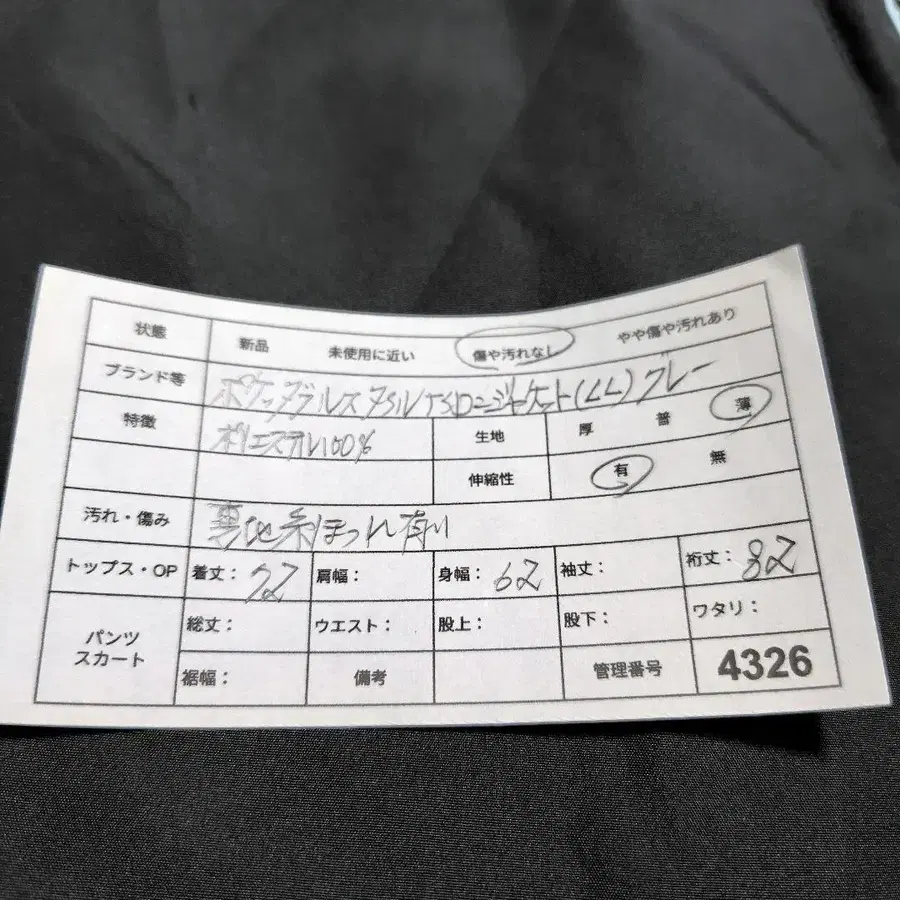 状態 新品 未使用に近い 傷や汚れなし やや傷や汚れあり
ブランド等 ジャケット(LL) グレー
特徴 ポリエステル100% 生地 厚 普 薄
伸縮性 有 無
汚れ・傷み 裏地糸ほつれ有り
トップス・OP 着丈: 72 肩幅: 身幅: 62 袖丈: 裄丈: 82
パンツ スカート 総丈: ウエスト: 股上: 股下: ワタリ:
裾幅: 備考 管理番号 4326